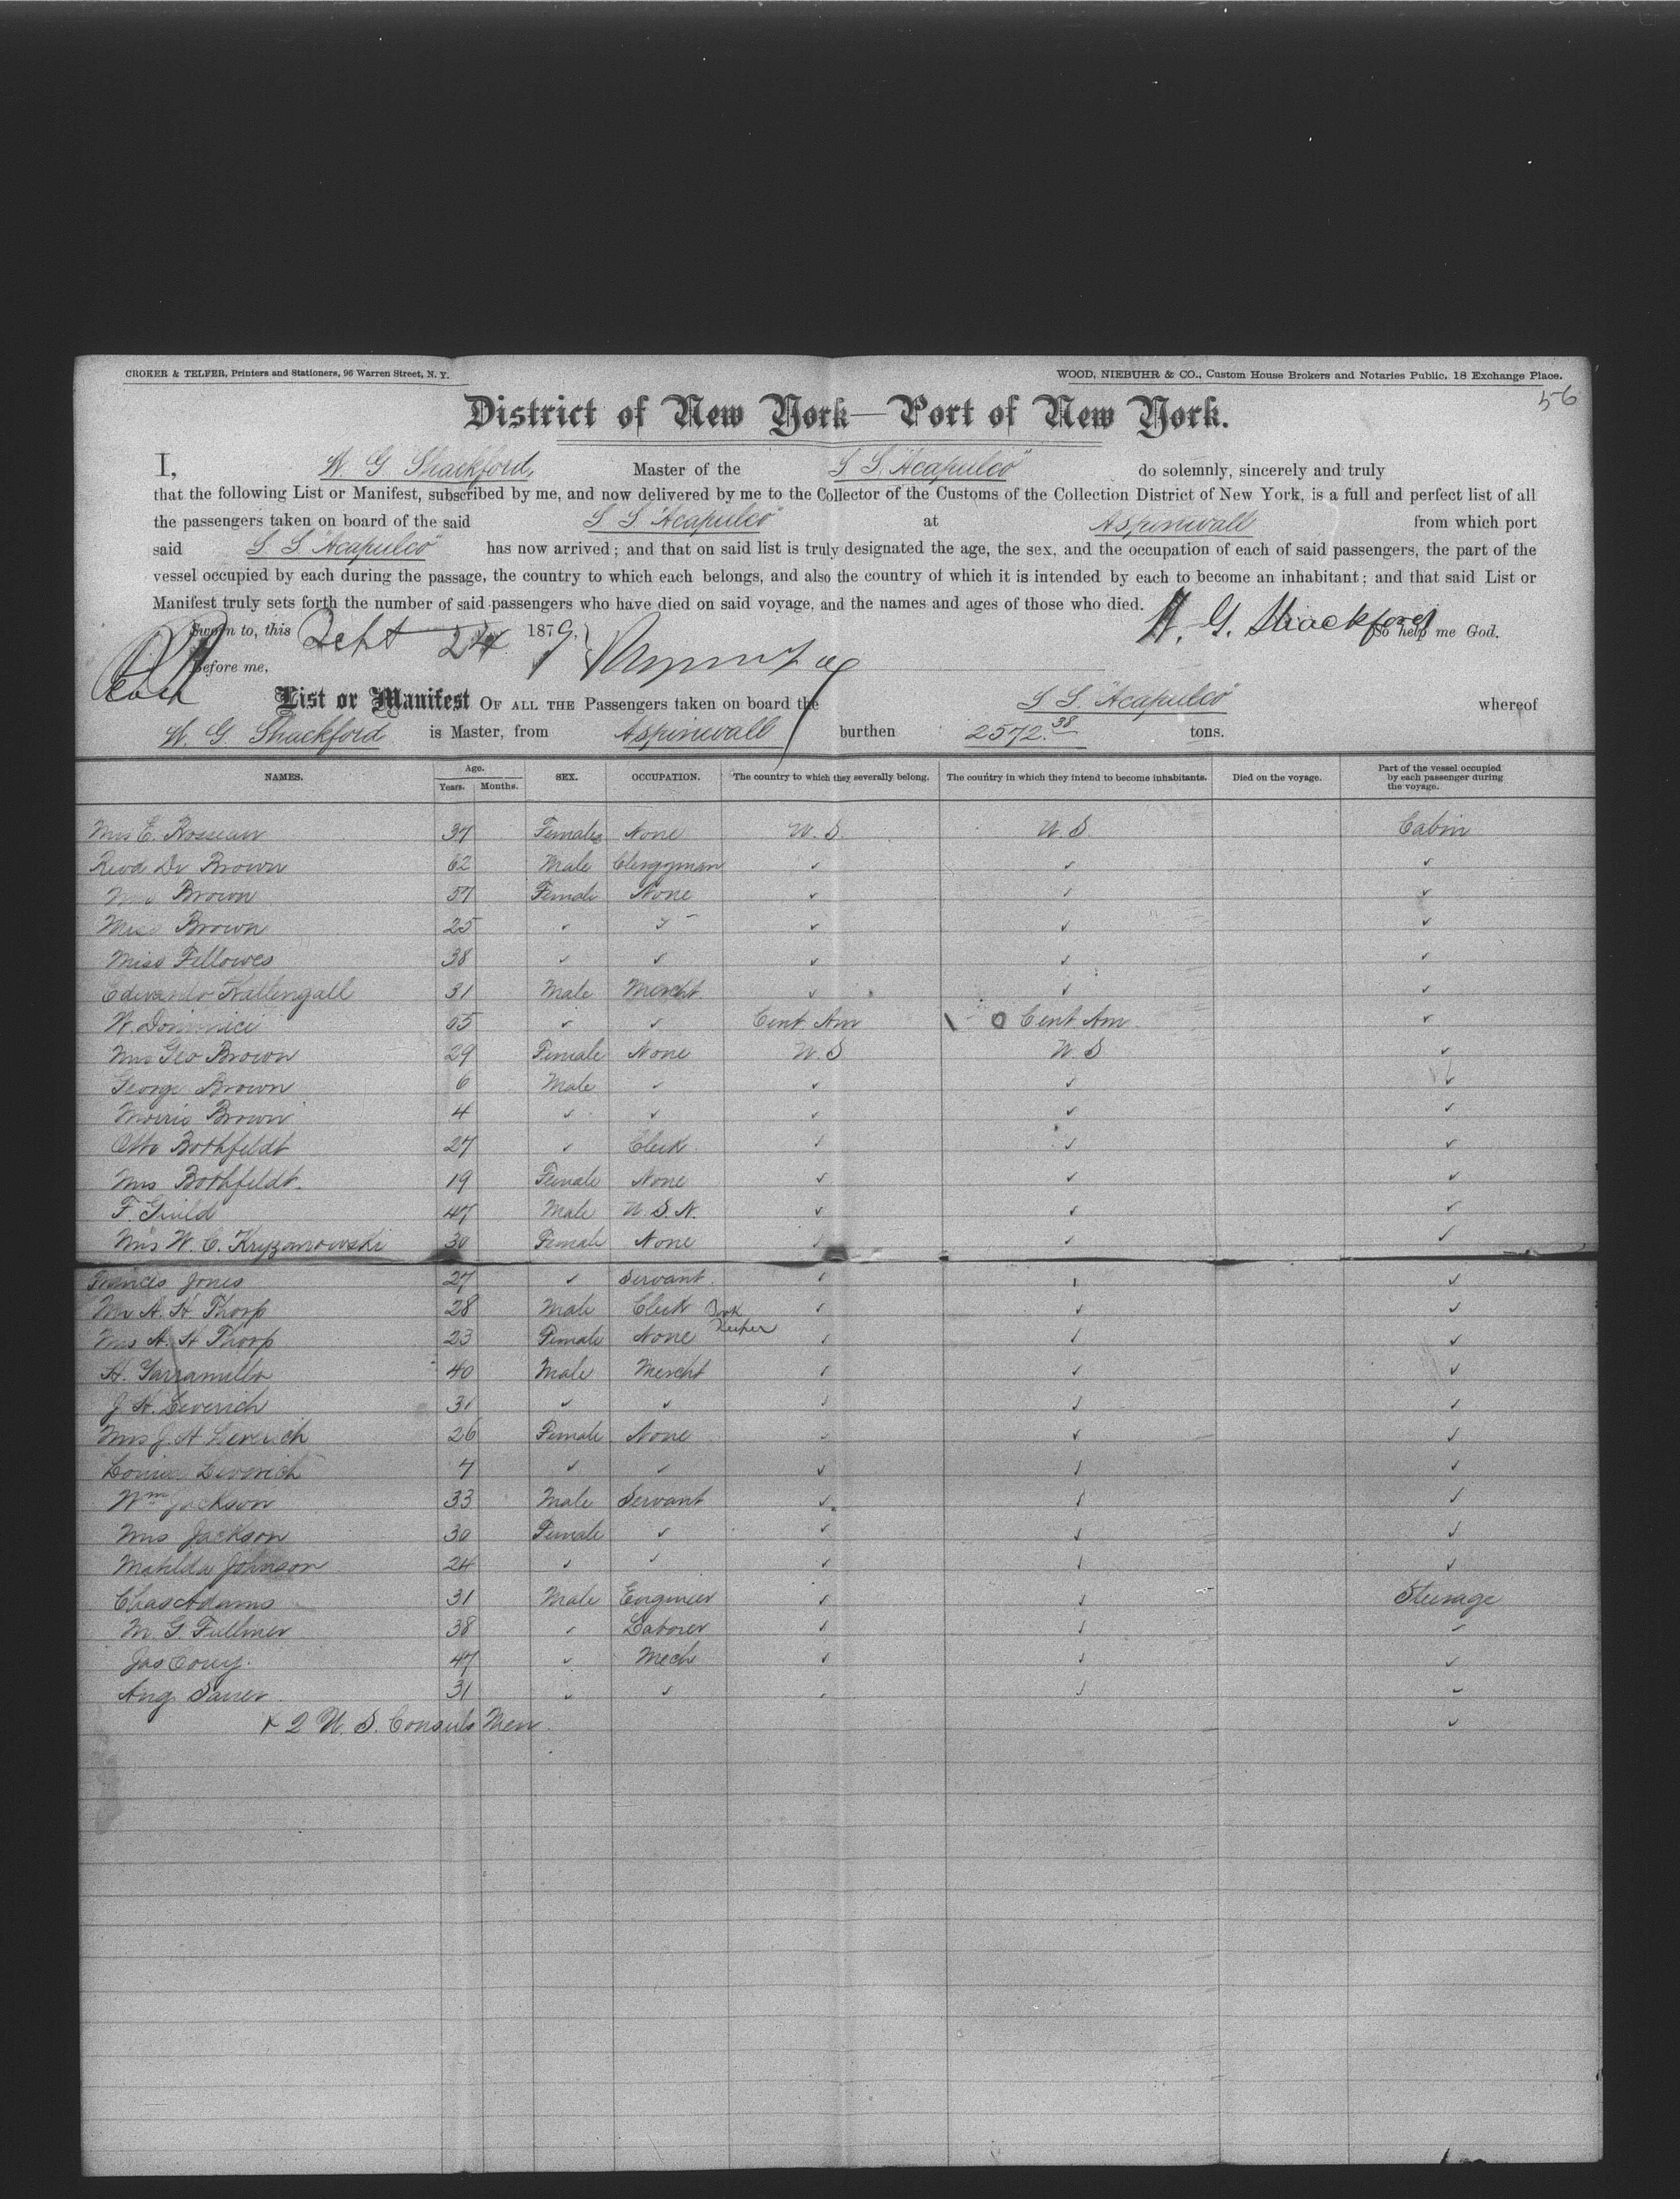 CROKER & TELFER, Printers and Stationers, 96 Warren Street, N. Y.
WOOD, NIEBUHR & CO., Custom House Brokers and Notaries Public, 18 Exchange Place.
56
District of New York—Port of New York.
I, W. G. Shackford, Master of the S S "Acapulco" do solemnly, sincerely and truly
that the following List or Manifest, subscribed by me, and now delivered by me to the Collector of the Customs of the Collection District of New York, is a full and perfect list of all
the passengers taken on board of the said S S "Acapulco" at Aspinwall from which port
said S S "Acapulco" has now arrived; and that on said list is truly designated the age, the sex, and the occupation of each of said passengers, the part of the
vessel occupied by each during the passage, the country to which each belongs, and also the country of which it is intended by each to become an inhabitant; and that said List or
Manifest truly sets forth the number of said passengers who have died on said voyage, and the names and ages of those who died.
W. G. Shackford So help me God.
Sworn to, this Sept 24 1879.
Before me,
List or Manifest OF ALL THE Passengers taken on board the S S "Acapulco" whereof
W. G. Shackford is Master, from Aspinwall burthen 2572.38 tons.
NAMES. Age. Years. Months. SEX. OCCUPATION. The country to which they severally belong. The country in which they intend to become inhabitants. Died on the voyage. Part of the vessel occupied by each passenger during the voyage.
Mrs E. Rosseau 37 Female None U. S. U. S Cabin
Revd Dr Brown 62 Male Clergyman ✓ ✓ ✓
Brown 57 Female None ✓ ✓ ✓
Miss Brown 25 ✓ ✓ ✓ ✓ ✓
Miss Fellowes 38 ✓ ✓ ✓ ✓ ✓
31 Male Mercht. ✓ ✓ ✓
W. Dominici 65 ✓ ✓ Cent Am Cent Am ✓
Mrs Geo Brown 29 Female None U. S U. S ✓
George Brown 6 Male ✓ ✓ ✓ ✓
Morris Brown 4 ✓ ✓ ✓ ✓ ✓
Otto Bothfeldt 27 ✓ Clerk ✓ ✓ ✓
Mrs Bothfeldt. 19 Female None ✓ ✓ ✓
F. Guild 47 Male U. S. N. ✓ ✓ ✓
Mrs W. C. Kryzanowski 30 Female None ✓ ✓ ✓
Frances Jones 27 ✓ Servant. ✓ ✓ ✓
Mr A. H. Thorp 28 Male Clerk Book Keeper ✓ ✓ ✓
Mrs A. H Thorp 23 Female None ✓ ✓ ✓
H. 40 Male Mercht ✓ ✓ ✓
J. H. Leverich 31 ✓ ✓ ✓ ✓ ✓
Mrs J. H Leverich 26 Female None ✓ ✓ ✓
Leverich 7 ✓ ✓ ✓ ✓ ✓
Wm Jackson 33 Male Servant ✓ ✓ ✓
Mrs Jackson 30 Female ✓ ✓ ✓ ✓
Matilda Johnson 24 ✓ ✓ ✓ ✓ ✓
Chas Adams 31 Male Engineer ✓ ✓ Steerage
M. G. Fullmer 38 ✓ Laborer ✓ ✓ ✓
Jas Corey. 47 ✓ Mech ✓ ✓ ✓
Aug Sauer 31 ✓ ✓ ✓ ✓ ✓
2 U. S. Consuls Men ✓